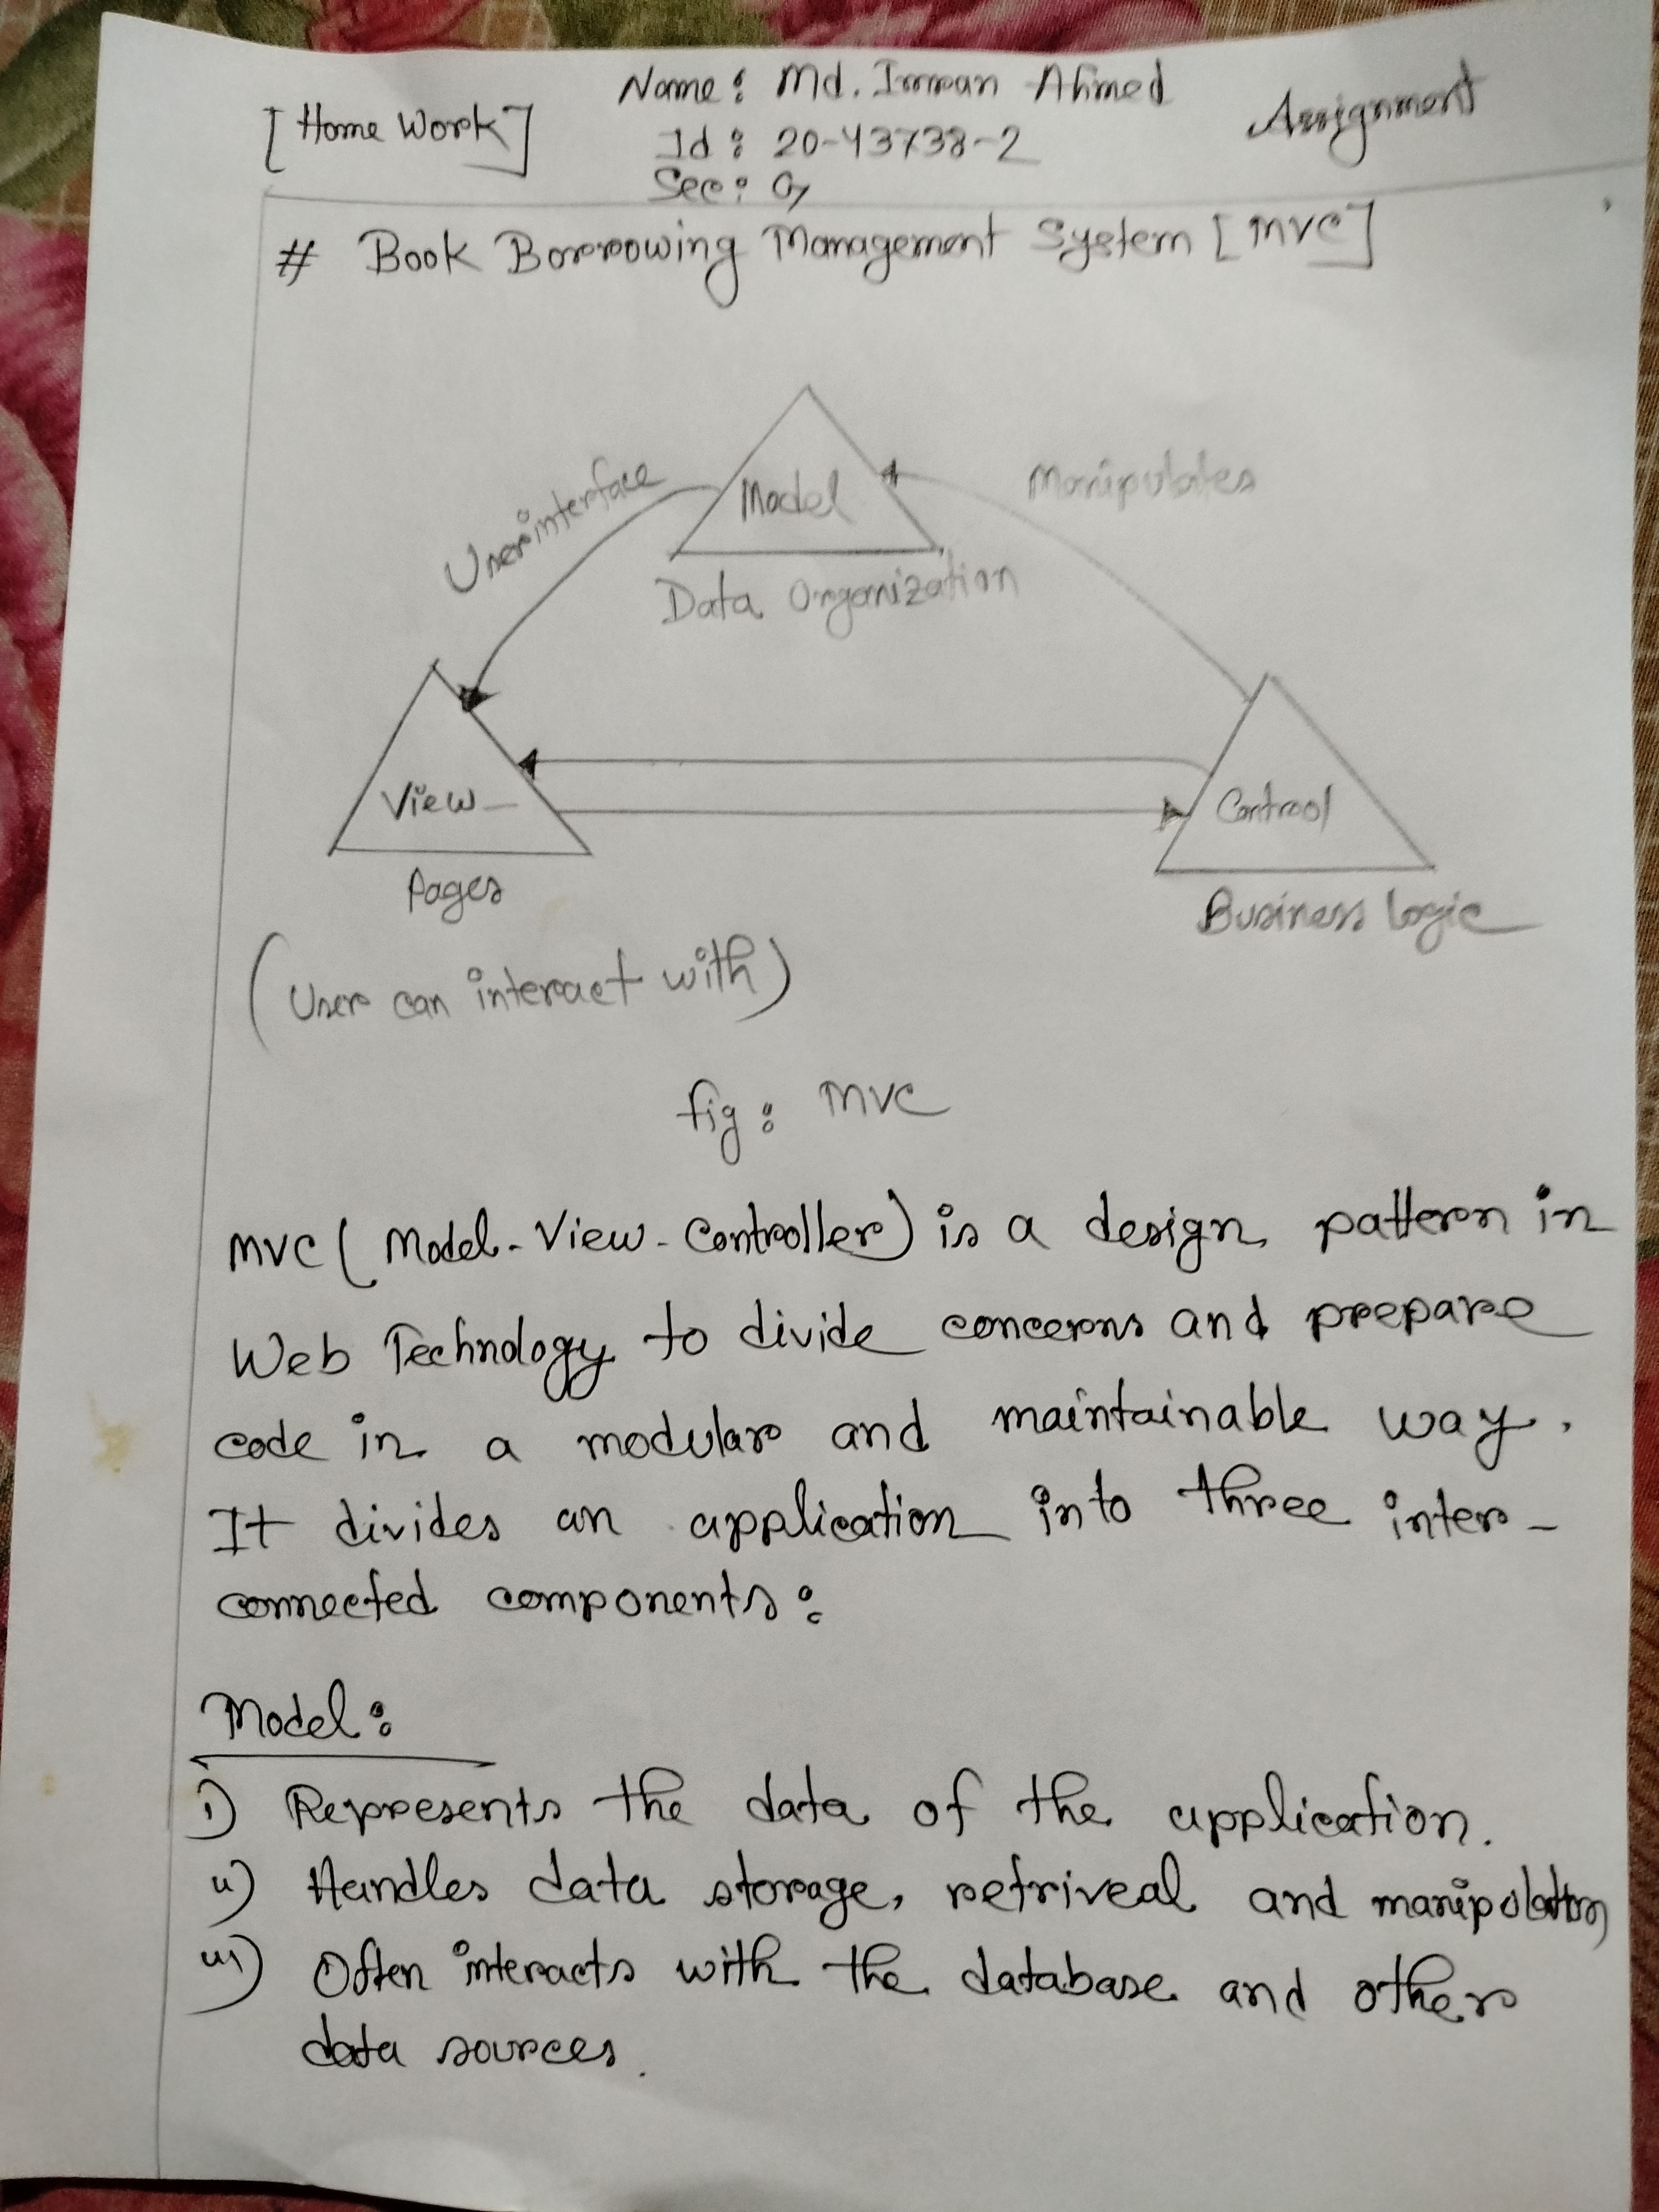 [Home Work]
Name: Md. Imran Ahmed
Assignment
Id: 20-43738-2
Sec:
# Book Borrowing Management System [MVC]
Model
Userinterface
Manipulates
Data Organization
View
Control
Pages
Business logic
(User can interact with)
fig: MVC
MVC (Model-View-Controller) is a design pattern in
Web Technology to divide concerns and prepare
code in a modular and maintainable way.
It divides an application into three inter-
connected components:
Model:
i) Represents the data of the application.
ii) Handles data storage, retriveal and manipulation
iii) Often interacts with the database and other
data sources.